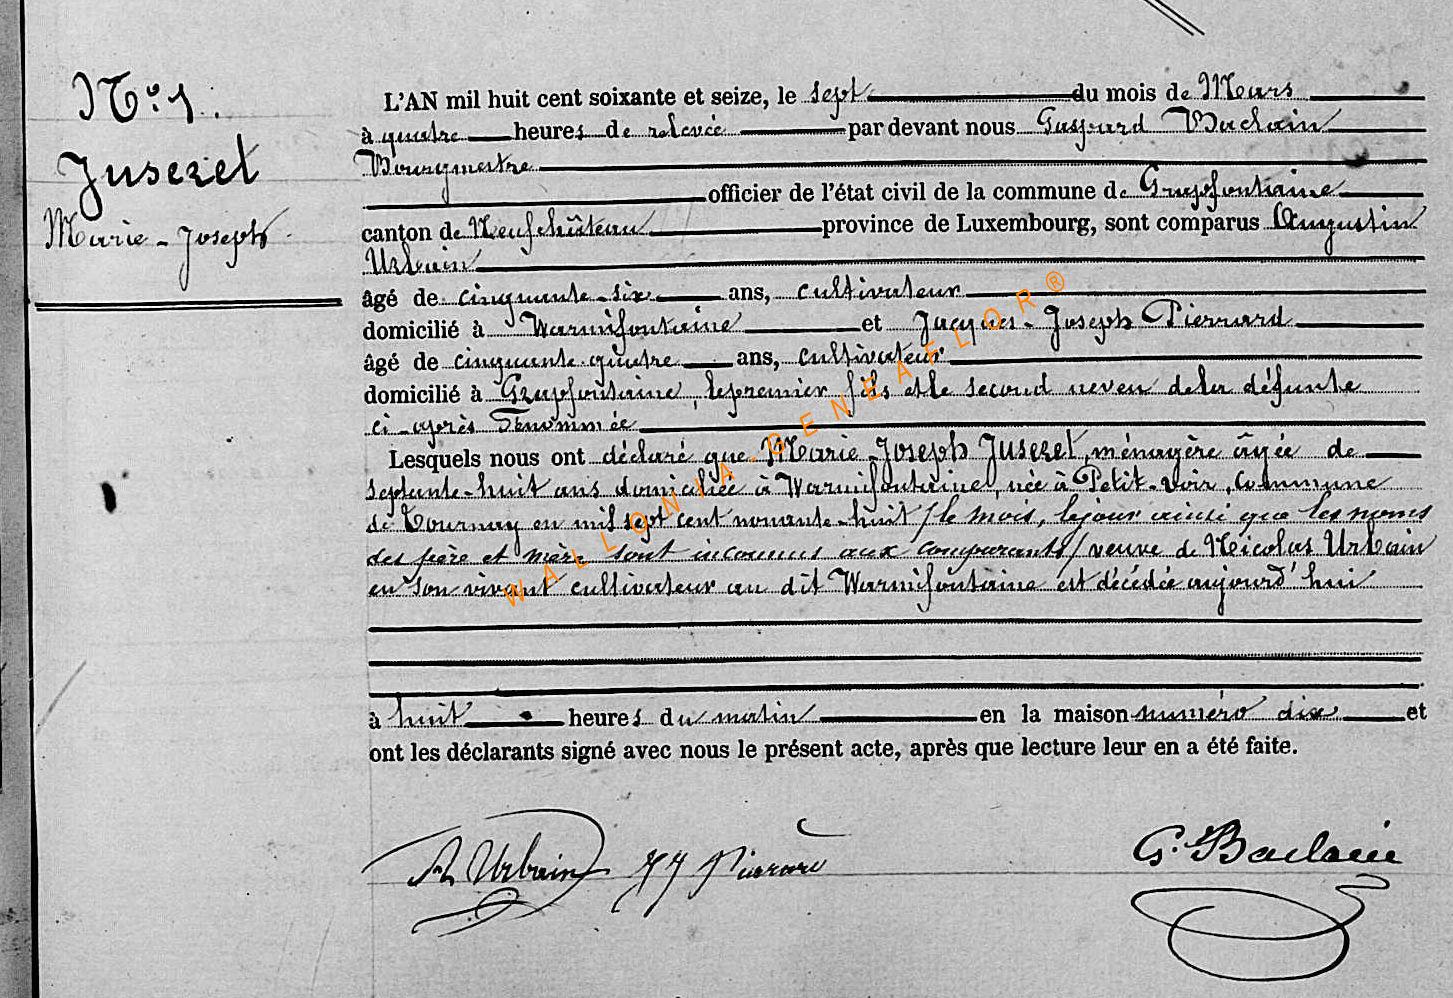 N.° 1.
Juseret
Marie-Joseph
L'AN mil huit cent soixante et seize, le sept du mois de Mars
à quatre heures de relevée par devant nous Gaspard Baclain
Bourgmestre
officier de l'état civil de la commune de Grapfontaine
canton de Neufchâteau province de Luxembourg, sont comparus Augustin
Urbain
âgé de cinquante-six ans, cultivateur
domicilié à Warmifontaine et Jacques-Joseph Pierrard
âgé de cinquante-quatre ans, cultivateur
domicilié à Grapfontaine, le premier fils et le second neveu de la défunte
ci-après dénommée
Lesquels nous ont déclaré que Marie-Joseph Juseret, ménagère âgée de
septante-huit ans domiciliée à Warmifontaine, née à Petit-Voir, Commune
de Tournay en mil sept cent nonante-huit /le mois, le jour ainsi que les noms
des père et mère sont inconnus aux comparants/ veuve de Nicolas Urbain
en son vivant cultivateur au dit Warmifontaine est décédée aujourd'hui
à huit heures du matin en la maison numéro dix et
ont les déclarants signé avec nous le présent acte, après que lecture leur en a été faite.
A Urbain JJ Pierard G. Baclain
WALLONIA GENEAFLOR®